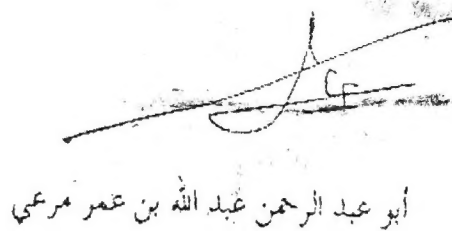 أبو عبد الرحمن عبد الله بن عمر مرعي